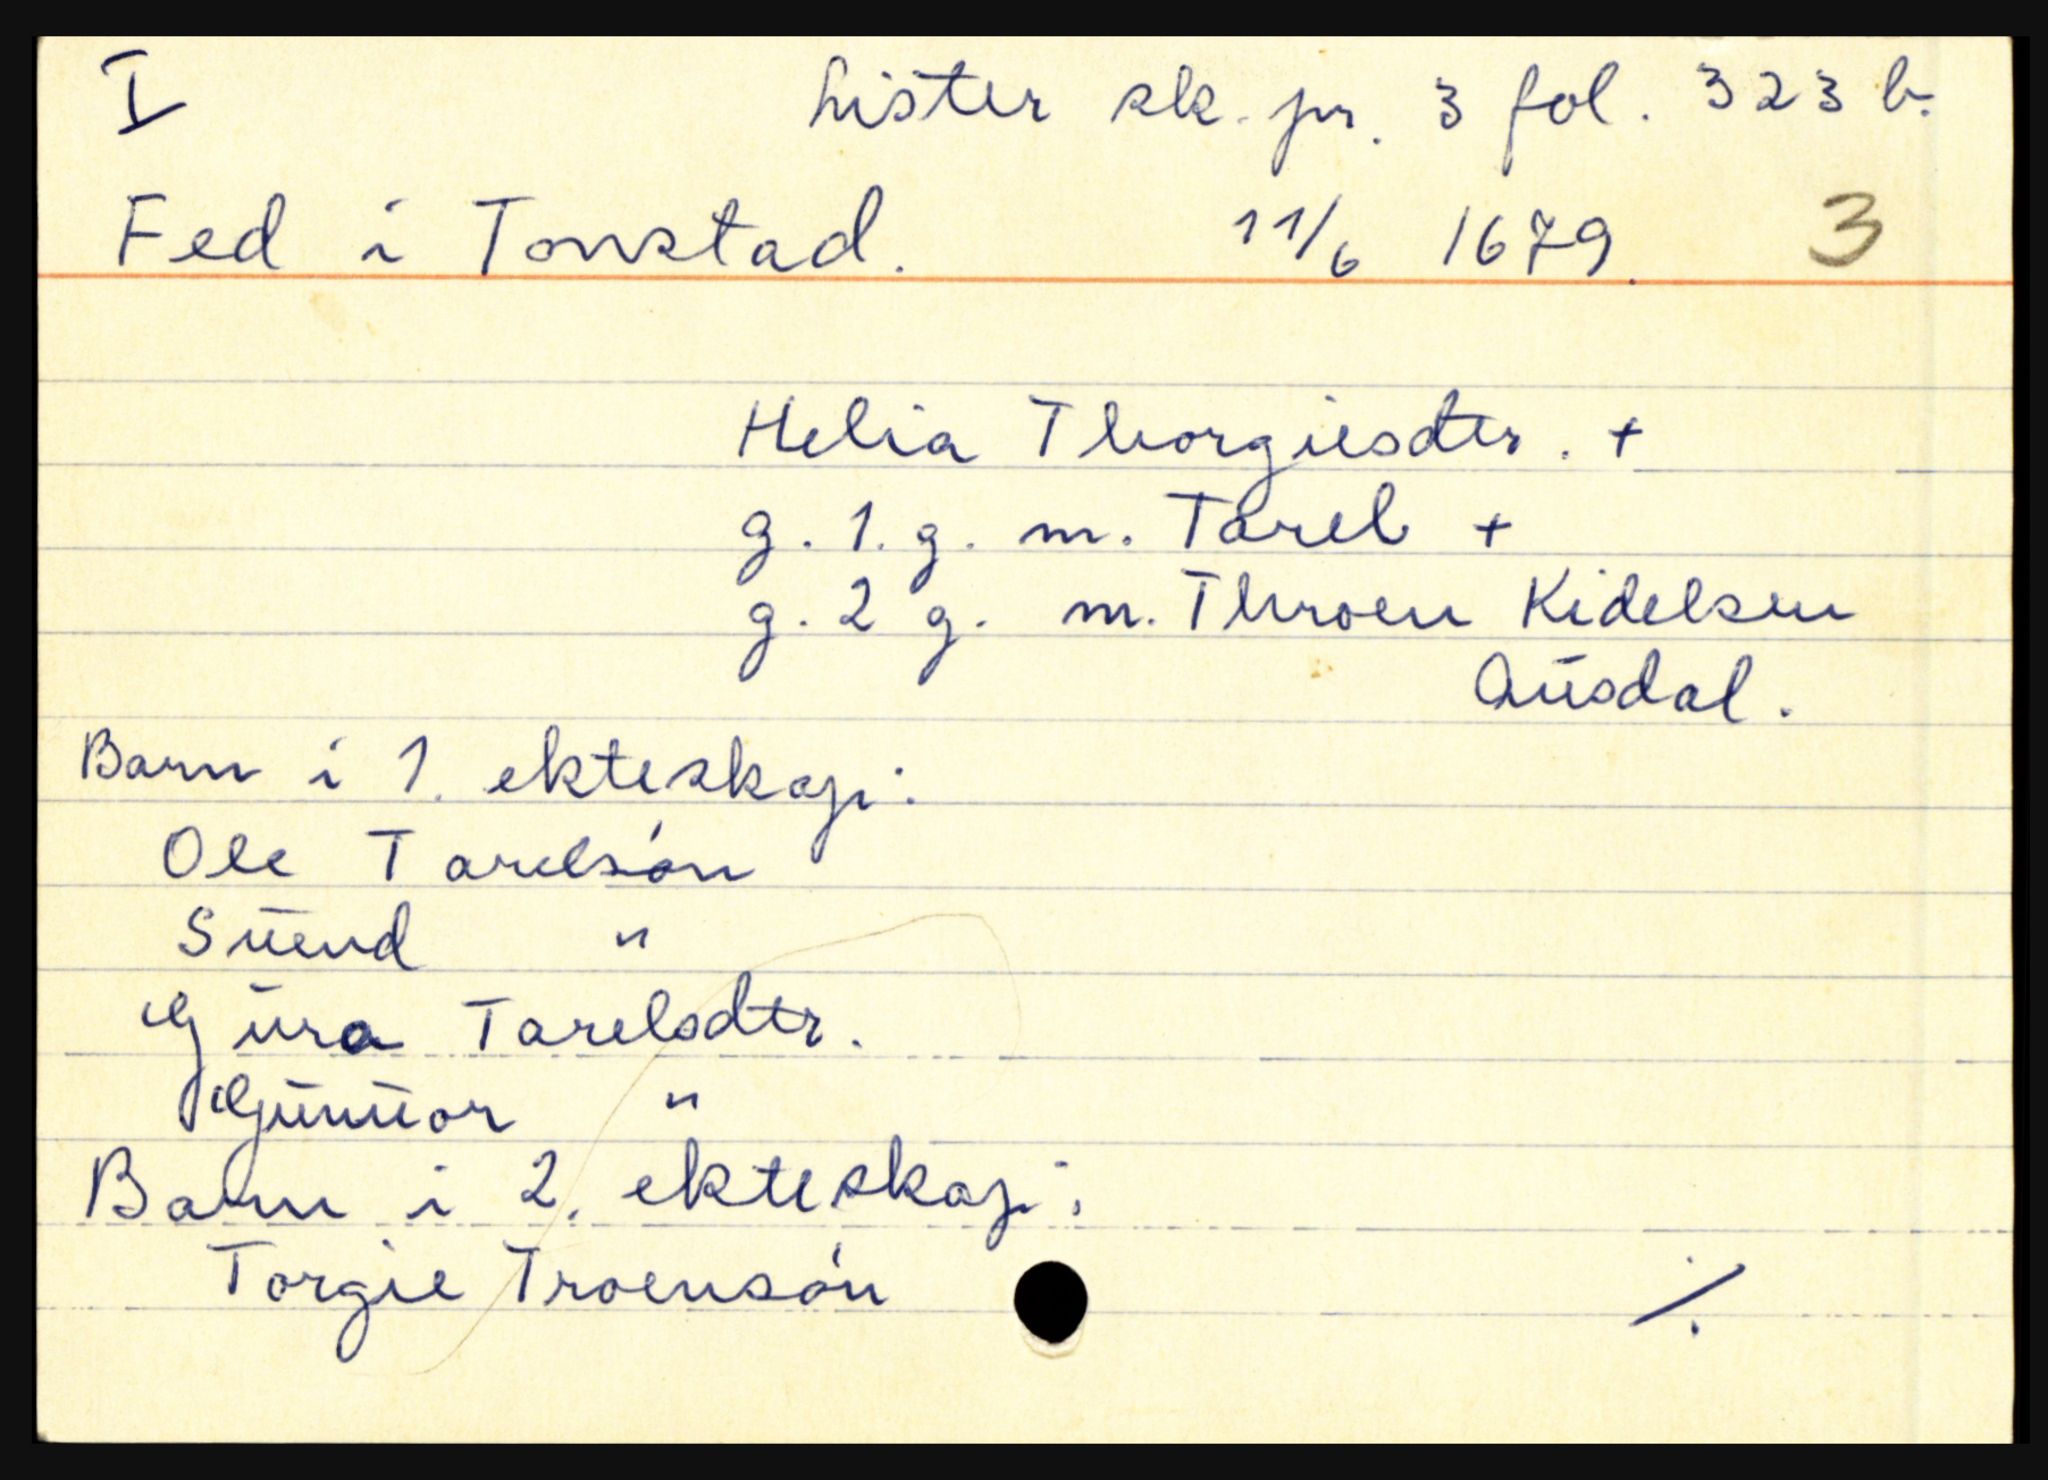 I Lister sk. pr. 3 fol. 323 b.
Fed i Tonstad. 11/6 1679. 3
Helia Thorgiesdtr. +
g. 1. g. m. Tarel +
g. 2 g. m. Throen Kidelsen
Ausdal.
Barn i 1. ekteskap:
Ole Tarelsón
Suend "
Gura Tarelsdtr.
Gunuor "
Barn i 2. ekteskap:
Torgie Troensón
./.